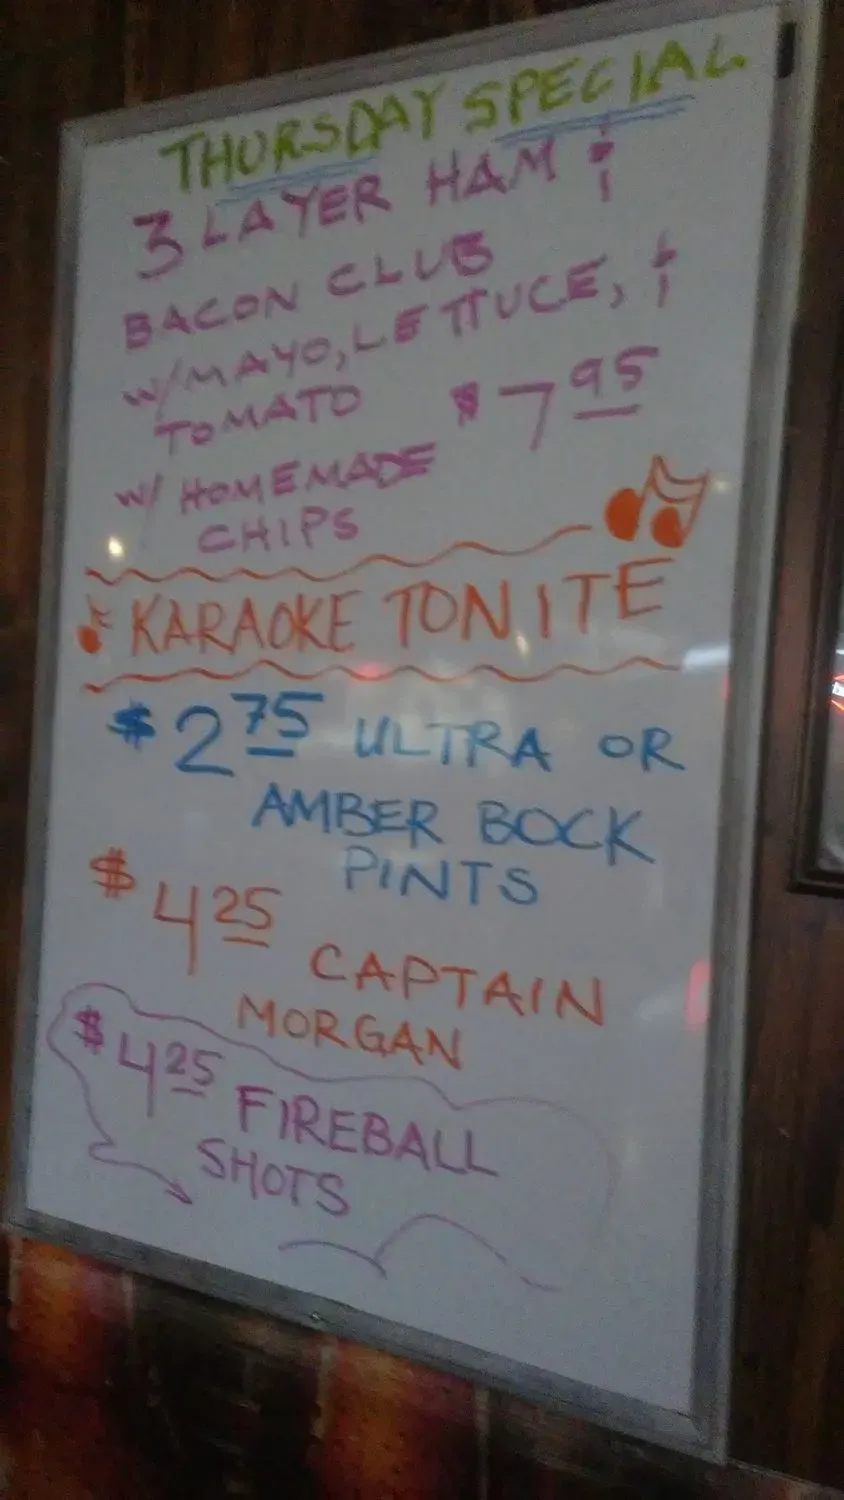 THURSDAY SPECIAL
3 LAYER HAM &
BACON CLUB
W/MAYO, LETTUCE, &
TOMATO $7.95
W/ HOMEMADE
CHIPS
KARAOKE TONITE
$2.75 ULTRA OR
AMBER BOCK
PINTS
$4.25 CAPTAIN
MORGAN
$4.25 FIREBALL
SHOTS